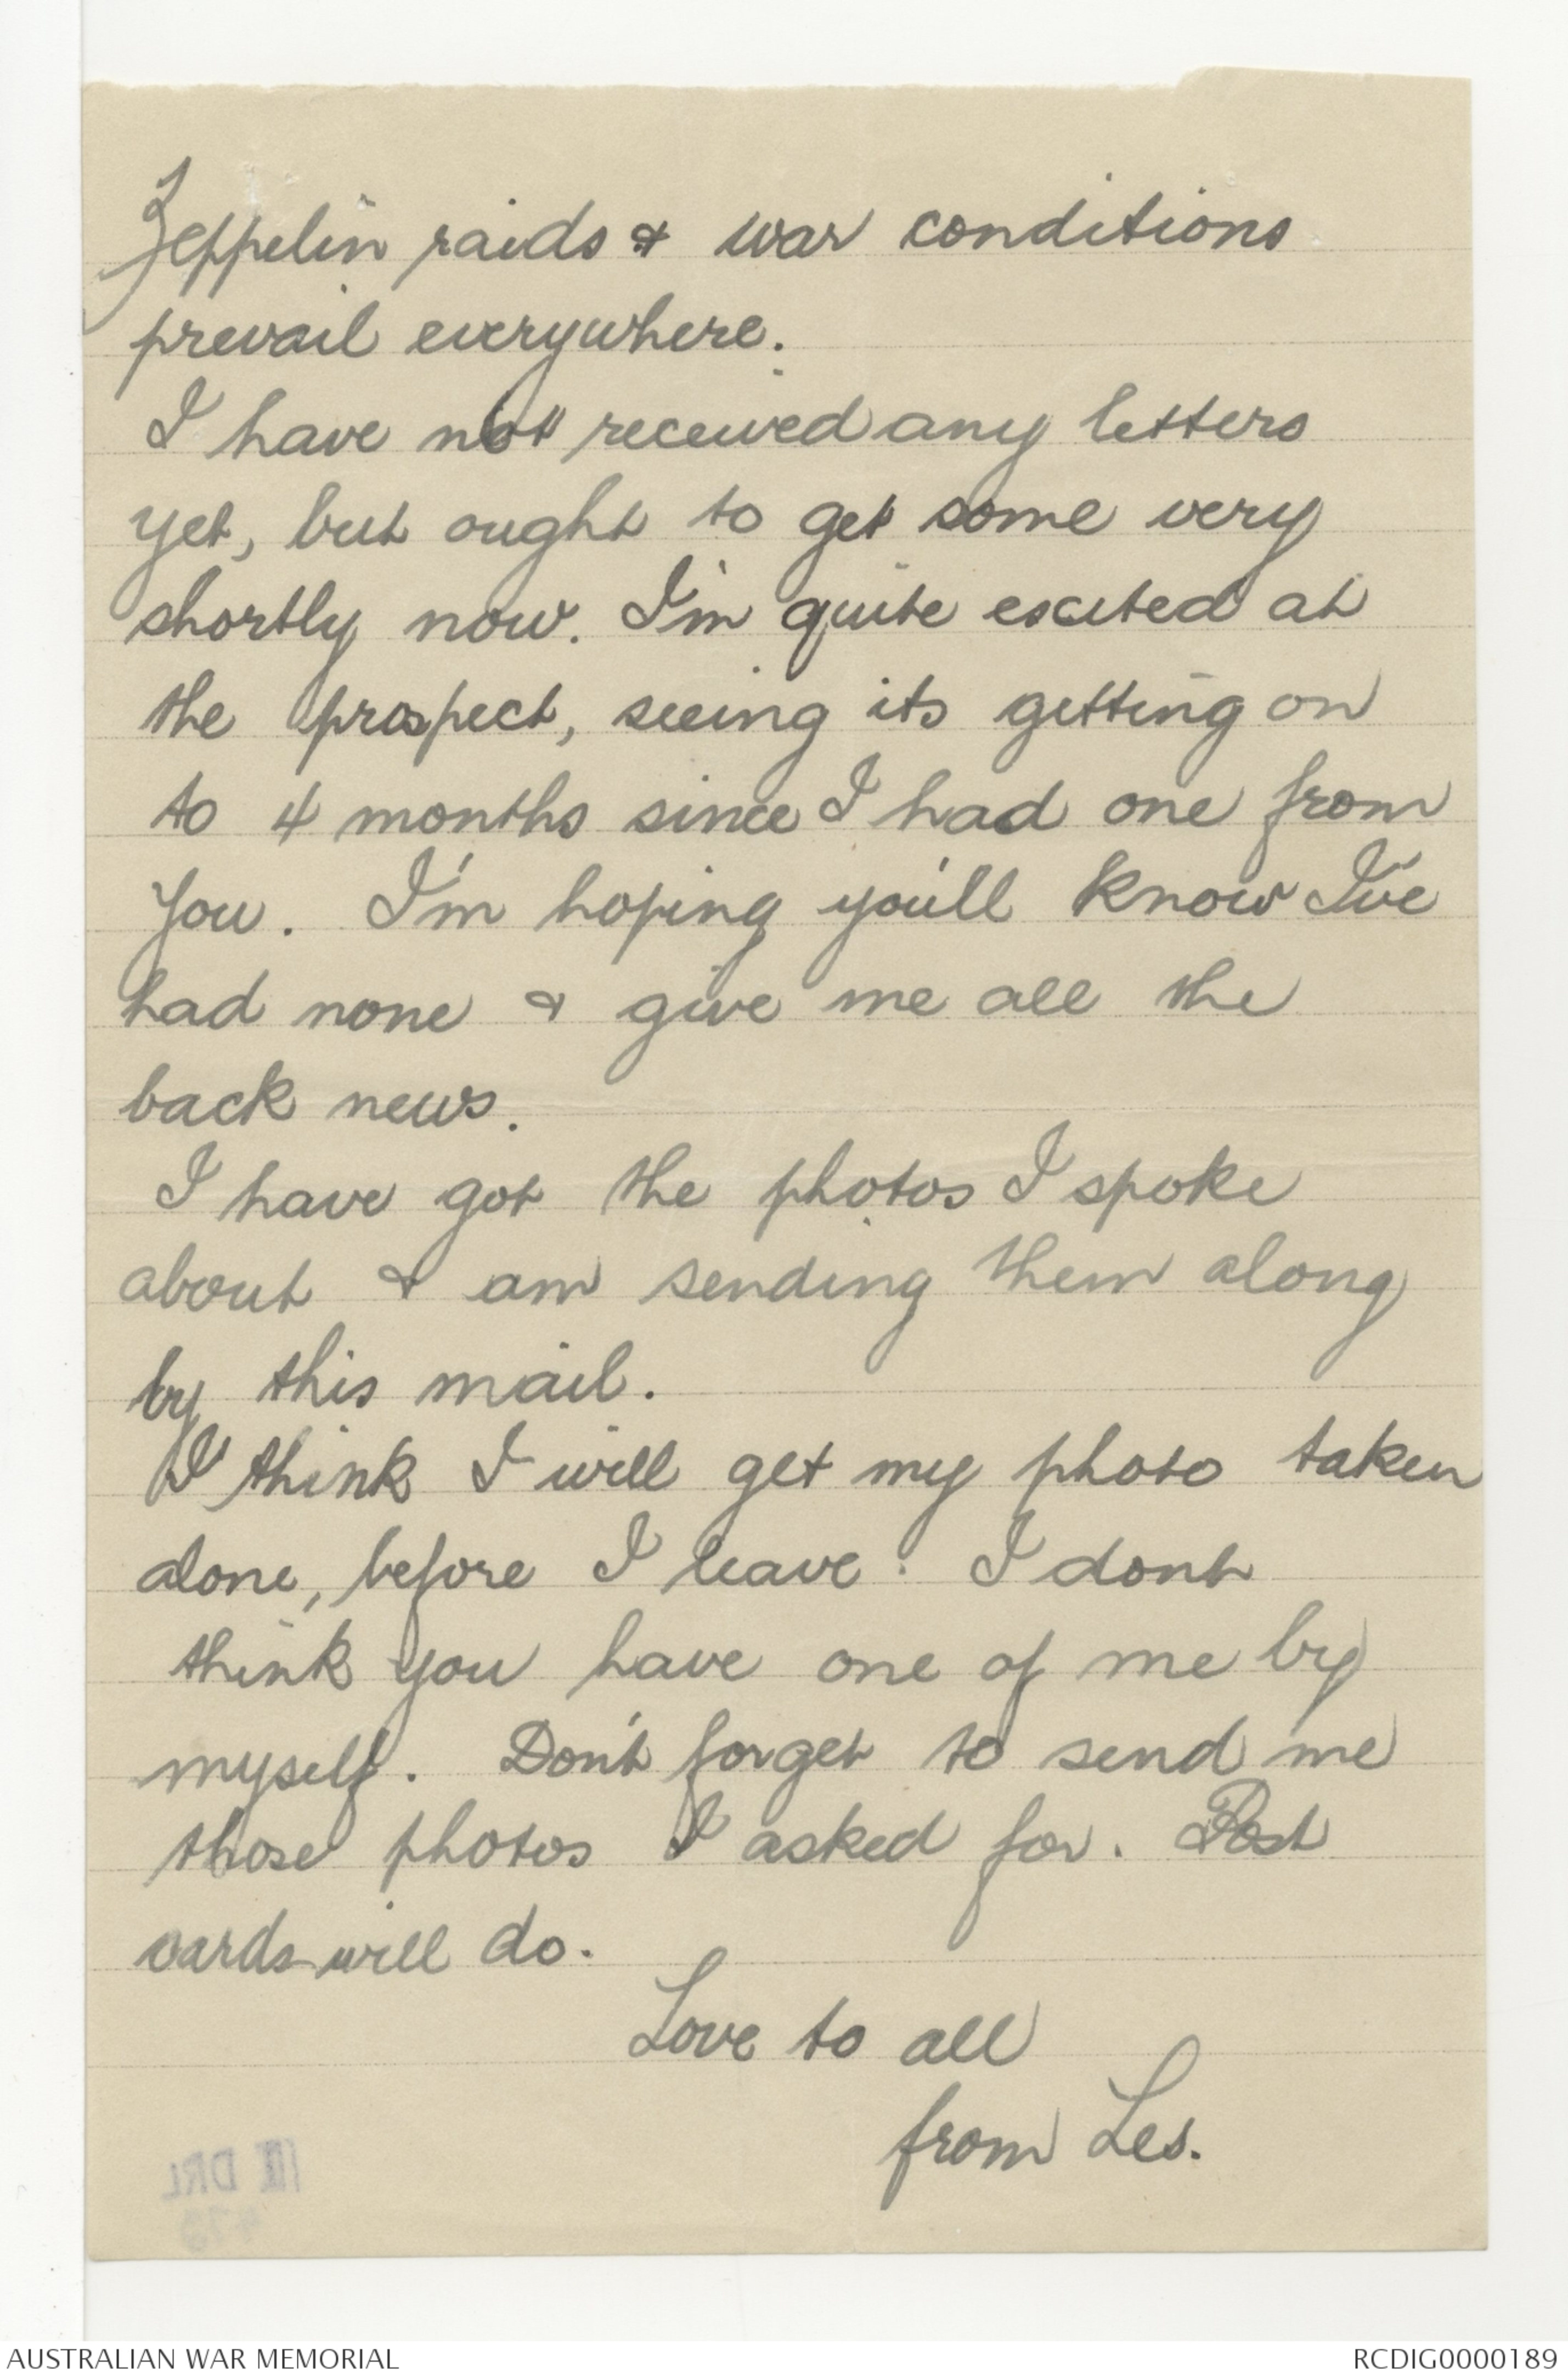 Zeppelin raids & war conditions
prevail everywhere.
I have not received any letters
yet, but ought to get some very
shortly now. I'm quite excited at
the prospect, seeing its getting on
to 4 months since I had one from
you. I'm hoping you'll know I've
had none & give me all the
back news.
I have got the photos I spoke
about & am sending them along
by this mail.
I think I will get my photo taken
alone, before I leave. I dont
think you have one of me by
myself. Don't forget to send me
those photos I asked for. Post
cards will do.
Love to all
from Les.
III DRL
AUSTRALIAN WAR MEMORIAL
RCDIG0000189